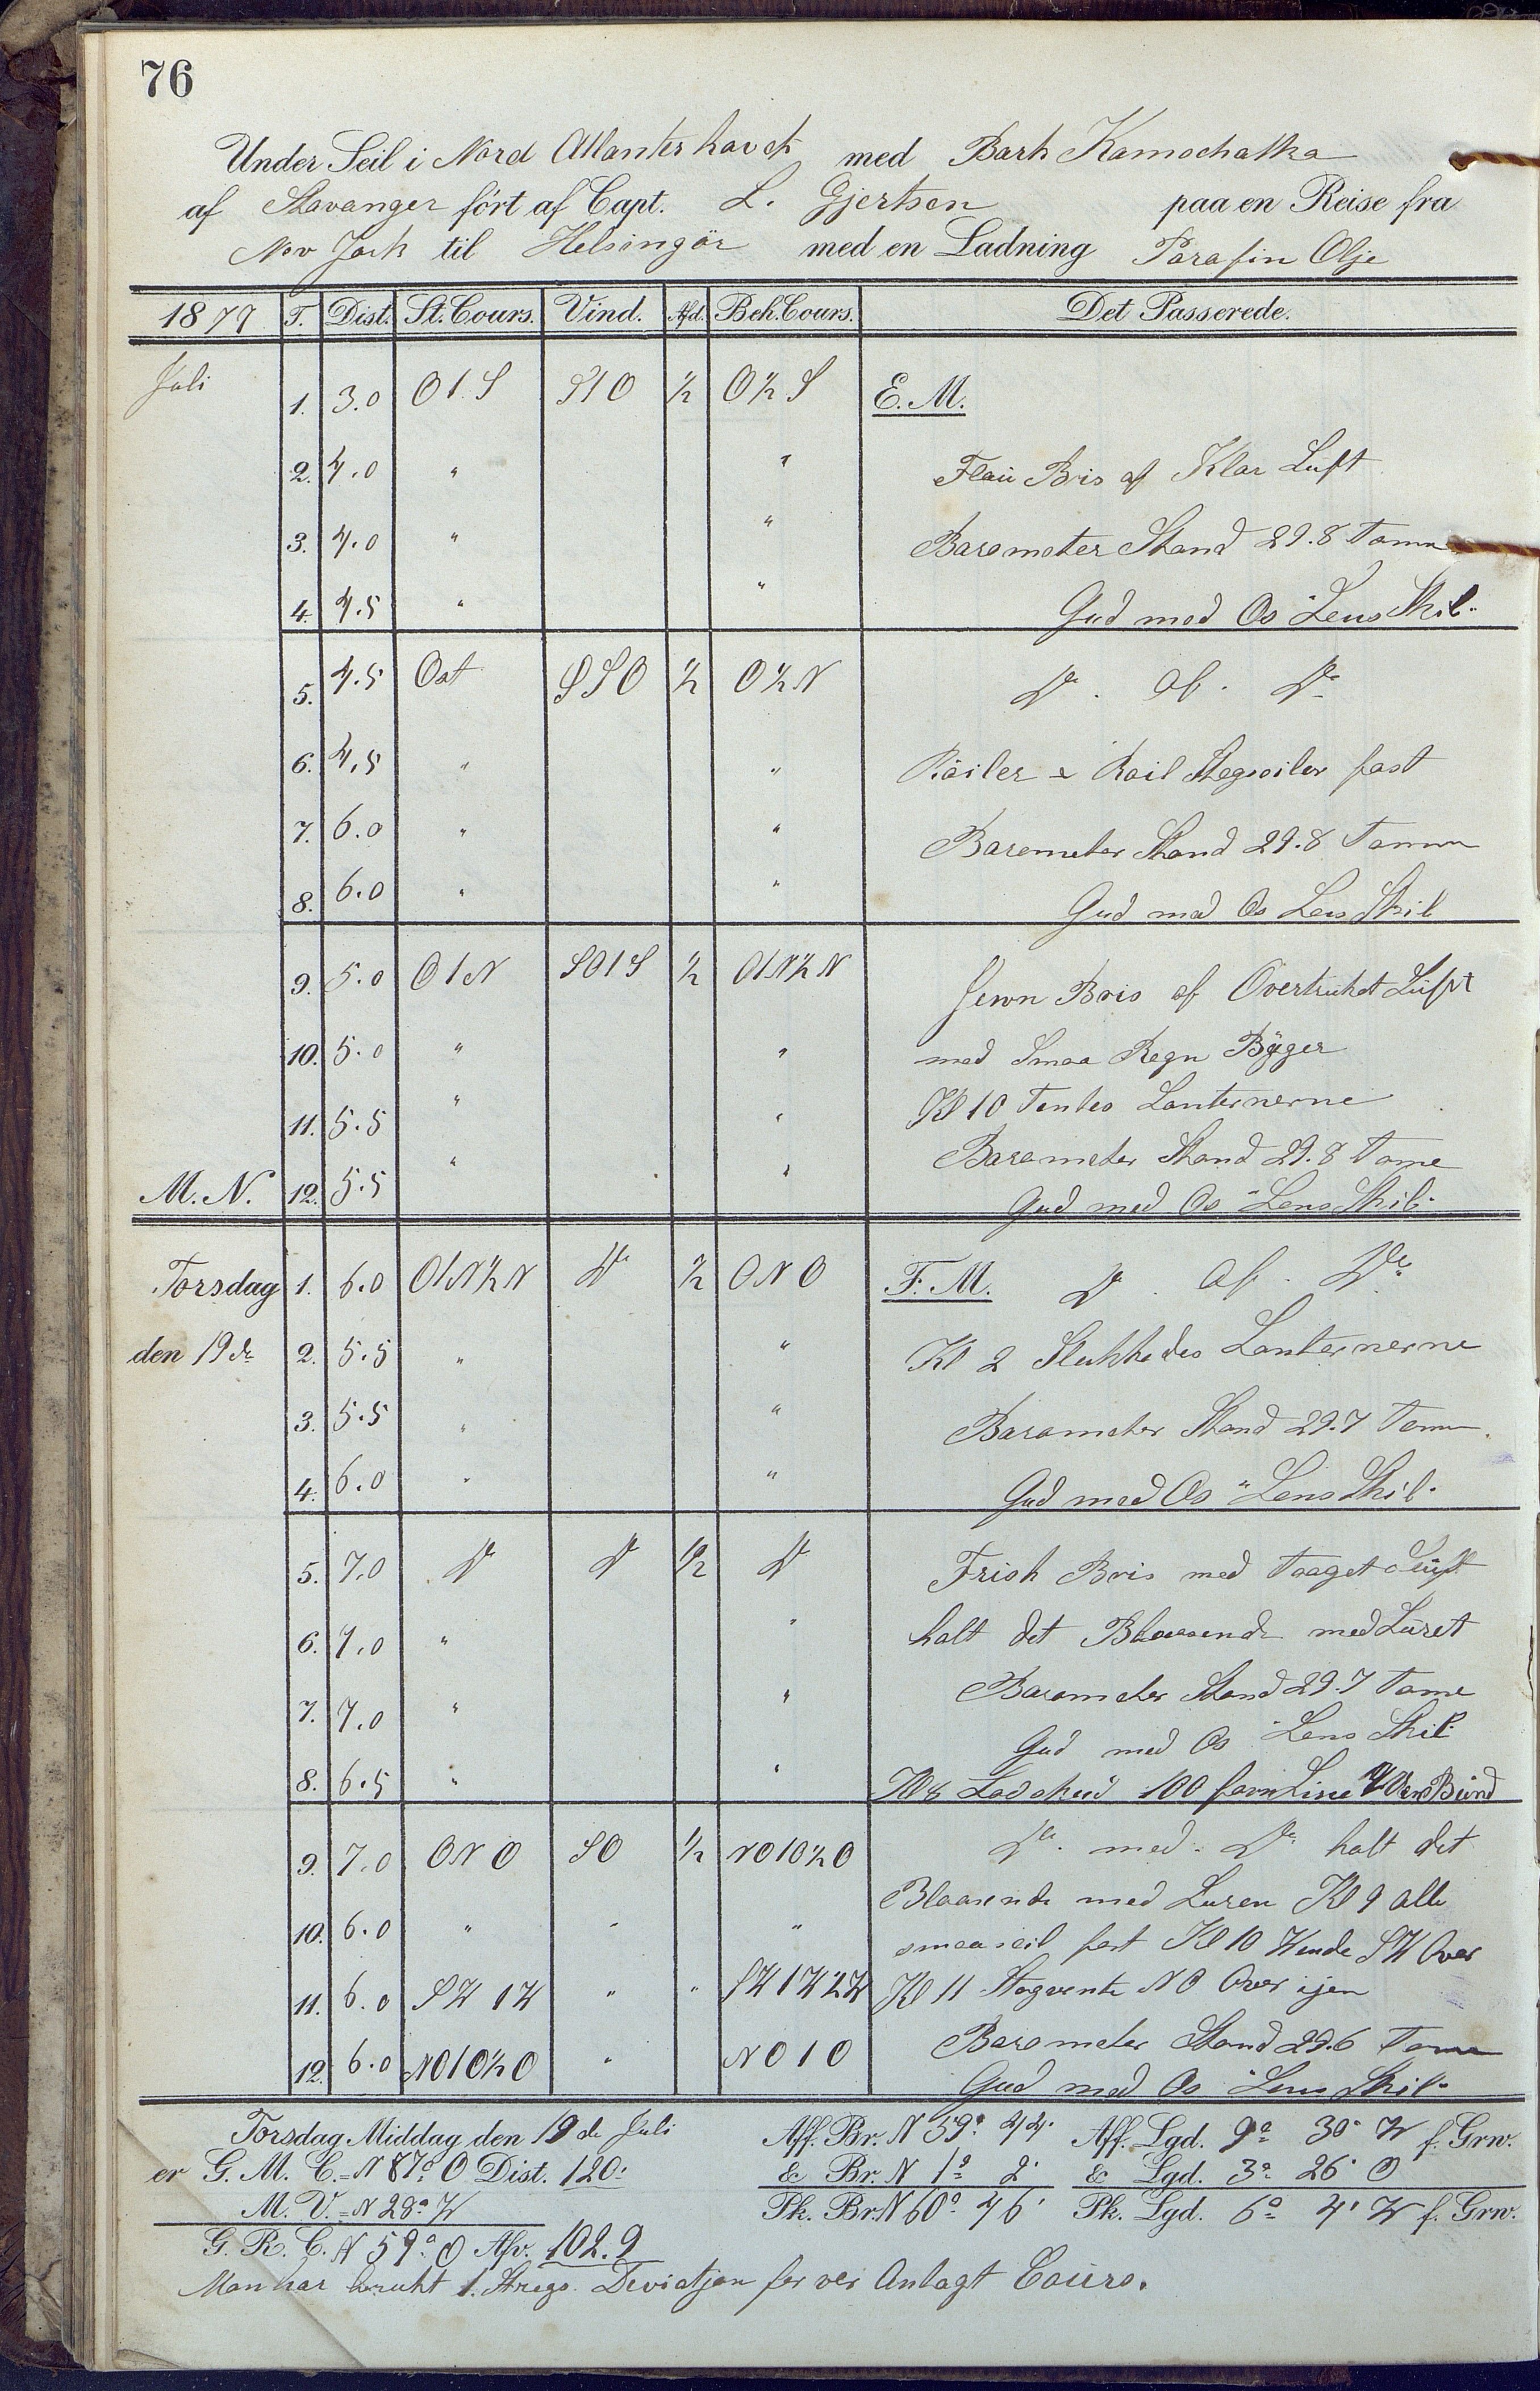 76
Under Seil i Nord Atlanterhavet med Bark Kamschatka
af Stavanger ført af Capt. L. Gjertsen paa en Reise fra
Nev Jork til Helsingör med en Ladning Parafin Olje
1877 T. Dist. St. Cours. Vind. Afd. Beh. Cours. Det Passerede.
Juli 1. 3.0 O 1 S S 1 O ½ O ½ S E. M.
2. 4.0 " " Flau Bris af Klar Luft
3. 4.0 " " Barometer Stand 29.8 Tomm
4. 4.5 " " Gud med Os Lens Skib
5. 4.5 Ost SSO ½ O ½ N Do. af. Do.
6. 4.5 " " fast
7. 6.0 " " Barometer Stand 29.8 Tomm
8. 6.0 " " Gud med Os Lens Skib
9. 5.0 O 1 N SO 1 S ½ O 1 N ½ N Jevn Bris af Overtrukket Luft
10. 5.0 " " med Smaa Regn Byger
11. 5.5 " " Kl 10 Tentes Lanternerne
Barometer Stand 29.8 Tome
M. N. 12. 5.5 " " Gud med Os Lens Skib
Torsdag 1. 6.0 O 1 N ½ N Do ½ ONO F. M. Do. af. Do.
den 19de 2. 5.5 " " Kl 2 Slukkedes Lanternerne
3. 5.5 " " Barometer Stand 29.7 Tomm.
4. 6.0 " " Gud med Os "Lens Skib"
5. 7.0 Do Do ½ Do Frisk Bris med Taaget Luft
6. 7.0 " " halt det Blaasende med Luret
7. 7.0 " " Barometer Stand 29.7 Tome
Gud med Os Lens Skib
8. 6.5 " " Kl 8 Lodskud 100 favn Line Bund
9. 7.0 ONO SO ½ NO 1 O ½ O Do. med. Do. halt det
Blaasende med Luren Kl 9 alle
10. 6.0 " " " smaaseil fast Kl 10 Vende SW Over
11. 6.0 SW 1 W " " SW 1 W ½ W Kl 11 Stagvente NO Over igen
12. 6.0 NO 1 O ½ O " NO 1 O Barometer Stand 29.6 Tome
Gud med Os Lens Skib
Torsdag Middag den 19de Juli Aff. Br. N 59° 44' Aff. Lgd. 9° 30' W f. Grw.
er G. M. C. = N 87° O Dist. 120' & Br. N 1° 2' & Lgd. 3° 26' O
M. V. = N 28° W Pk. Br. N 60° 46' Pk. Lgd. 6° 4' W f. Grw.
G. R. C. N 59° O Afv. 102.9
Man har brukt 1. Stregs Deviatjon for ver Anlagt Cours.